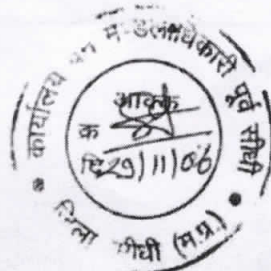 कार्यालय वन मण्डलाधिकारी पूर्व सीधी
आवक
क्र
दि 29/11/06
जिला सीधी (म.प्र.)